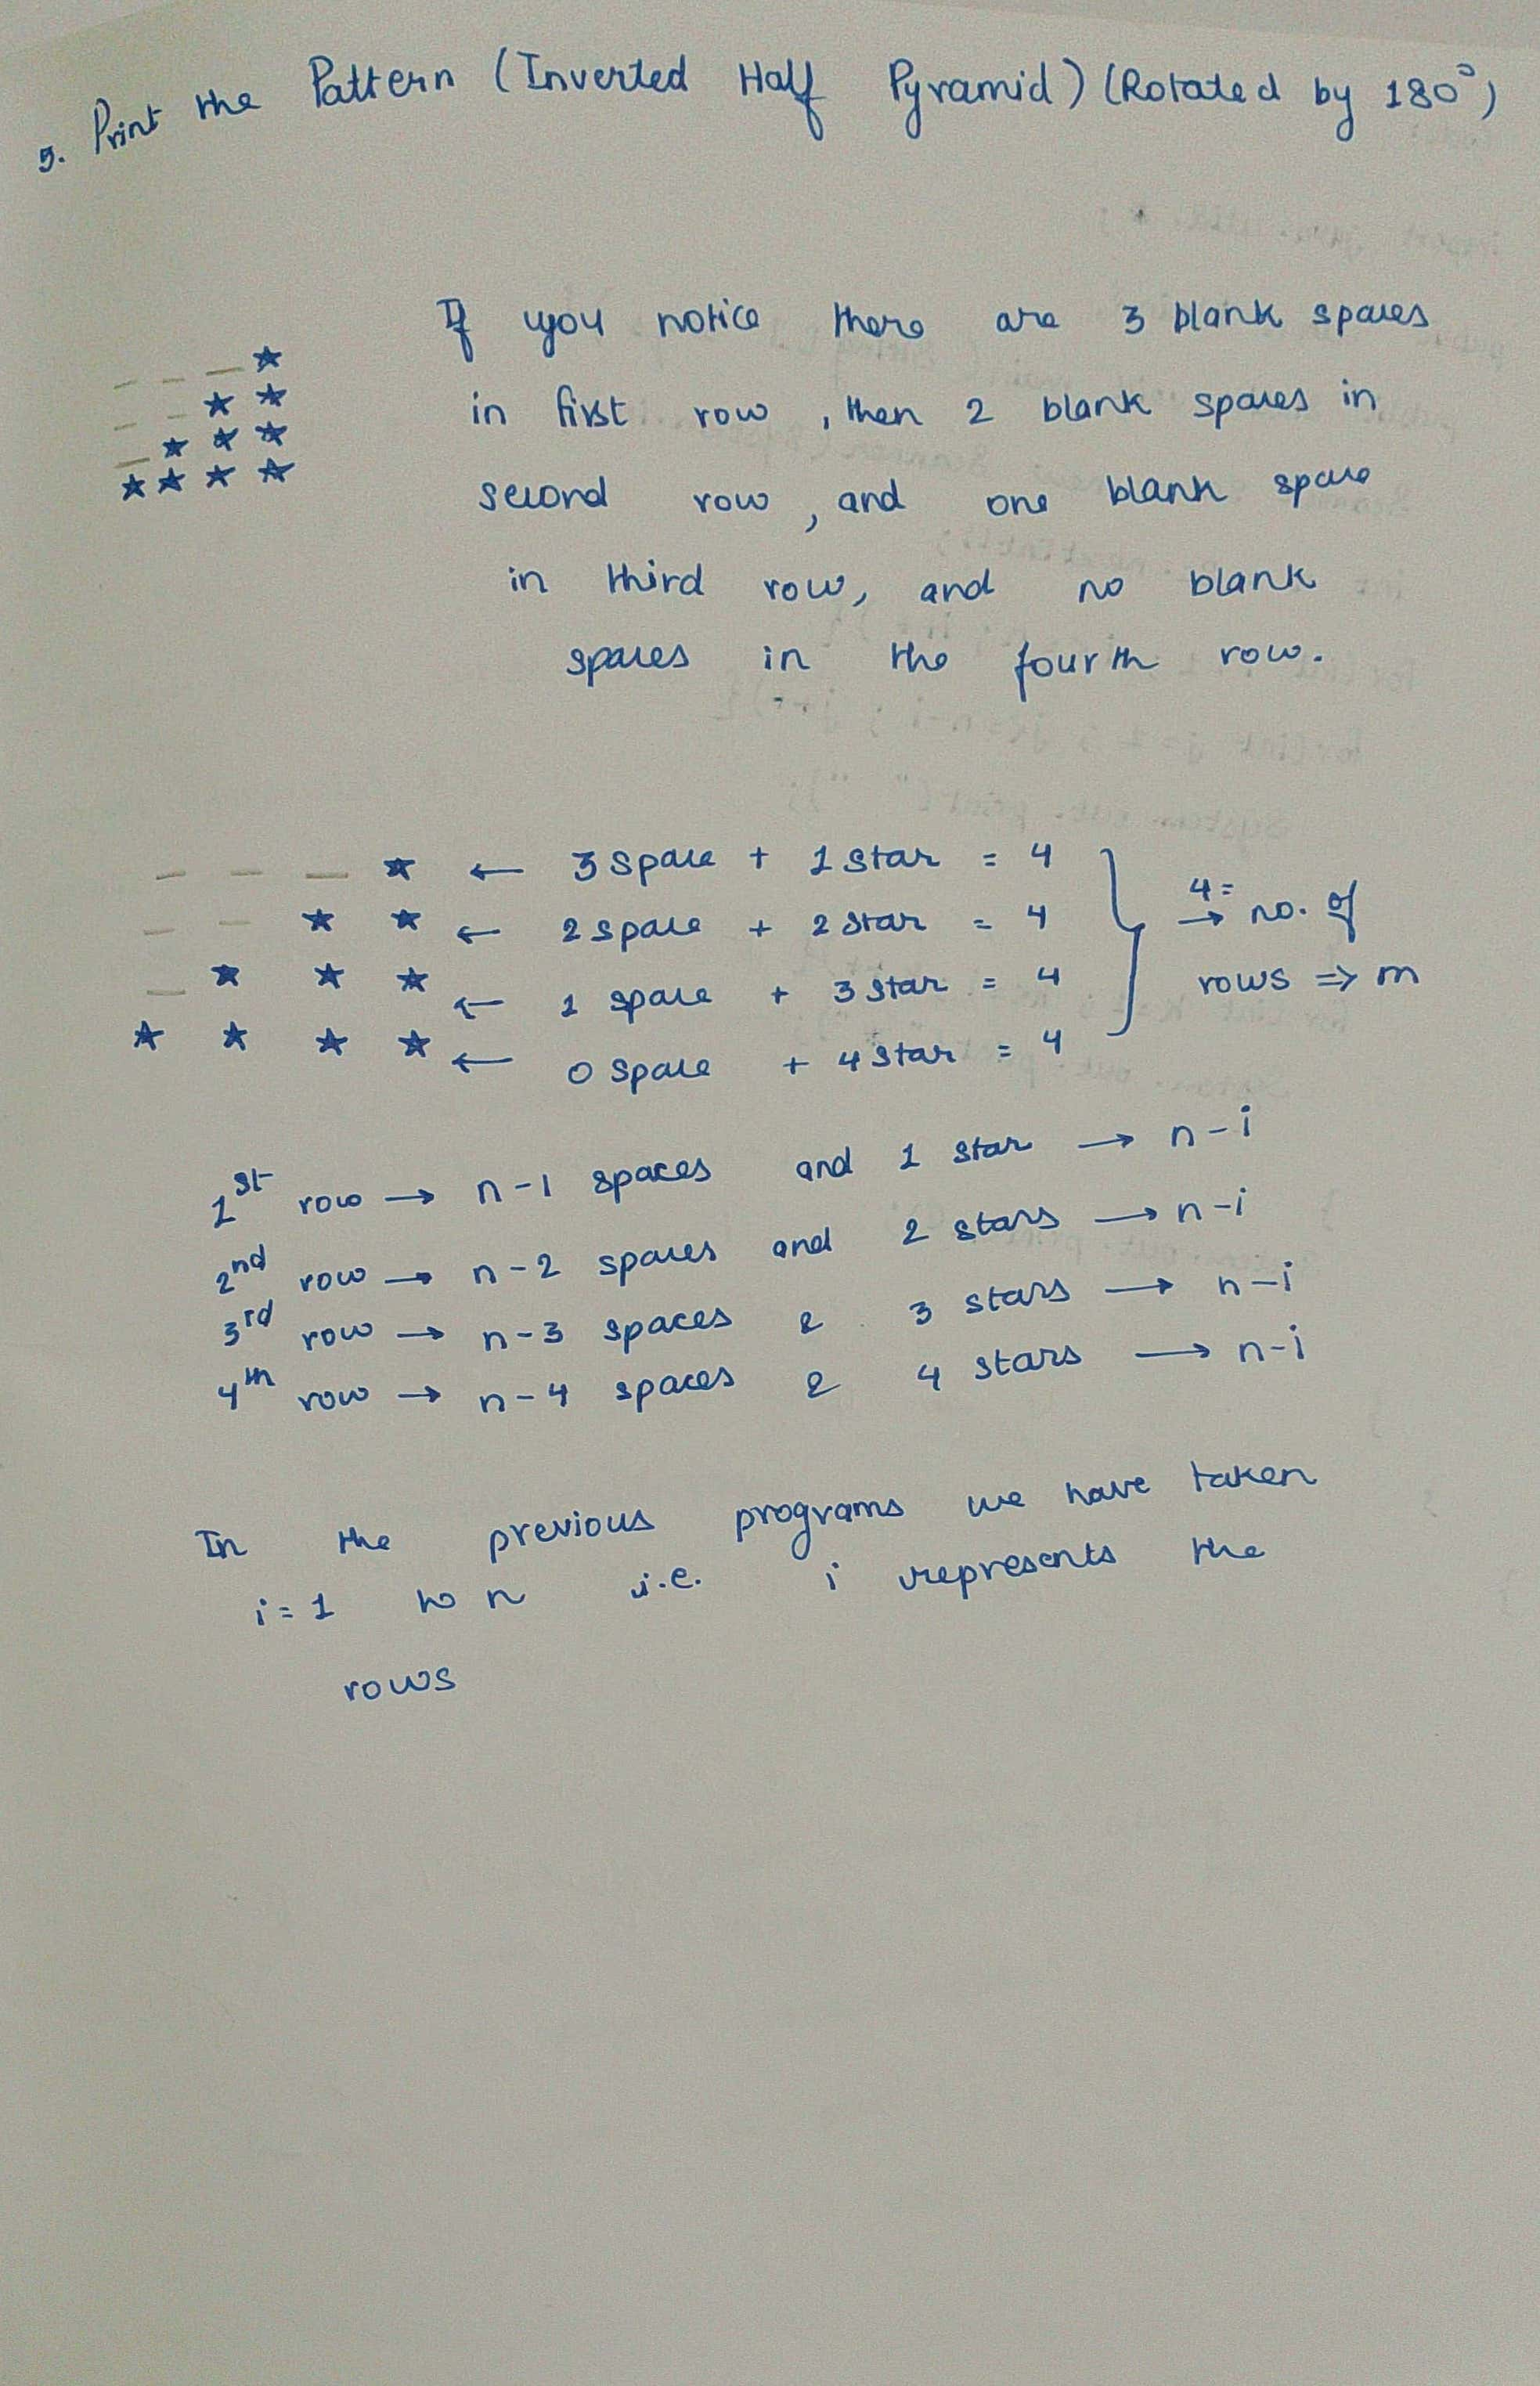 5. Print the Pattern (Inverted Half Pyramid) (Rotated by 180°)
If you notice there are 3 blank spaces
in first row, then 2 blank spaces in
second row, and one blank space
in third row, and no blank
spaces in the fourth row.
_ _ _ ★
_ _ ★ ★
_ ★ ★ ★
★ ★ ★ ★
_ _ _ ★ ← 3 space + 1 star = 4
_ _ ★ ★ ← 2 space + 2 star = 4
_ ★ ★ ★ ← 1 space + 3 star = 4
★ ★ ★ ★ ← 0 space + 4 star = 4
} 4 = → no. of
rows ⇒ m
1st row → n-1 spaces and 1 star → n-i
2nd row → n-2 spaces and 2 stars → n-i
3rd row → n-3 spaces & 3 stars → n-i
4th row → n-4 spaces & 4 stars → n-i
In the previous programs we have taken
i=1 to n i.e. i represents the
rows